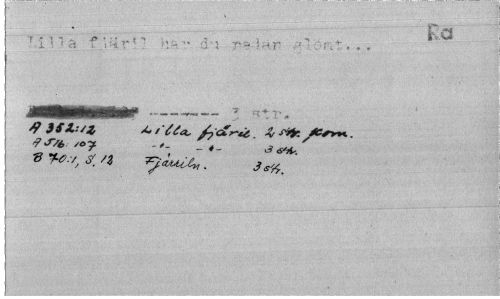 Ra
Lilla fjäril har du redan glömt...
------- 3 str.
A 352:12 Lilla fjäril. 2 str. kom.
A 516:107 -"- -"- 3 str.
B 70:1, s. 12 Fjäriln. 3 str.